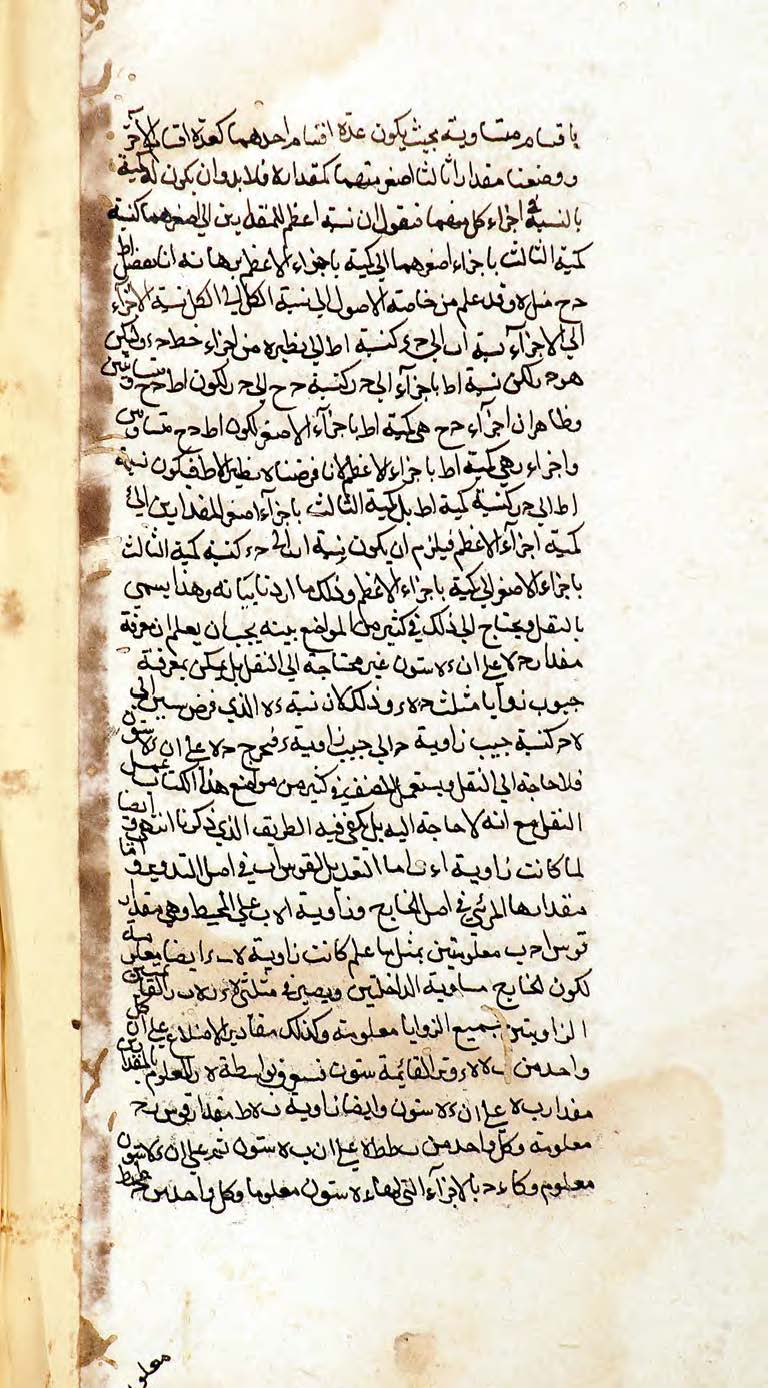 باقسام متساوية بحيث يكون عدة اقسام احدهما كعدة اقسام الآخر
ووضعنا مقدارا ثالثا اصغر منهما كمقدار ه فلا بد وان يكون له كمية
بالنسبة الى اجزاء كل منهما فنقول ان نسبة اعظم المقدارين الى اصغرهما كنسبة
كمية الثالث باجزاء اصغرهما الى كمية باجزاء الاعظم برهانه انا نفصل اط
دح مثل ه وقد علم من خاصة الاصول الى نسبة الكل الى الكل نسبة الاجزاء
الى الاجزآء نسبة اب الى ح ء كنسبة اط الى نظيره من اجزاء خط ح ء وليكن
هو د ر لكن نسبة اط باجزآء الى د ر كنسبة دح الى د ر لكون اط دح متساويين
وظاهر ان اجزآء دح هى كمية اط باجزآء الاصغر لكون اط دح متساويين
واجزاء ر هي كمية اط باجزاء الاعظم لانا فرضناه نظير الاط فيكون نسبة
اط الى د ر كنسبة كمية اط بل كمية الثالث باجزآء اصغر المقدارين الى
كمية اجزآء الاعظم فيلزم ان يكون نسبة اب الى ح ء كنسبة كمية الثالث
باجزاء الاصغر الى كمية باجزاء الاعظم وذلك ما اردنا بيانه وهذا يسمى
بالنقل ويحتاج الى ذلك في كثير من المواضع بينه يجب ان يعلم ان معرفة
مقدار ح ه على ان ء ه ستون غير محتاجة الى النقل بل يمكن بمعرفة
جيوب زوايا مثلث ح ه ء وذلك لان نسبة ء ه الذي فرض ستين الى
ه ح كنسبة جيب زاوية ح الى جيب زاوية ء فيخرج ح ه على ان ء ه ستون
فلا حاجة الى النقل ويستعمل المصنف في كثير من مواضع هذا الكتاب عمل
النقل مع انه لا حاجة اليه بل يكفي فيه الطريق الذي ذكرنا انتهى وايضا
لما كانت زاوية اما التعديل لقوس اب في اصل التدوير واما
مقدارها المرئي في اصل الخارج وزاوية الاب على المحيط وهى مقدار
قوس ا ح ب معلومتين بمثل ما علم كانت زاوية ايضا معلومة
لكون الخارج مساوية الداخلتين ويصير في مثلثى القائمتين
الزاويتين جميع الزوايا معلومة وكذلك مقادير الاضلاع على ان كل
واحد من وتر القائمة ستون نسعو بواسطة ه ر المعلوم بالمقدارين
مقدار ب ه على ان ء ه ستون وايضا زاوية ب ه ط مقدار قوس ب ح
معلومة وكل واحد من ب ط ط ه على ان ب ه ستون ثم على ان ء ه ستون
معلوم وكاء ح بالاجزآء التى بها ء ه ستون معلوما وكل واحد من
معلو